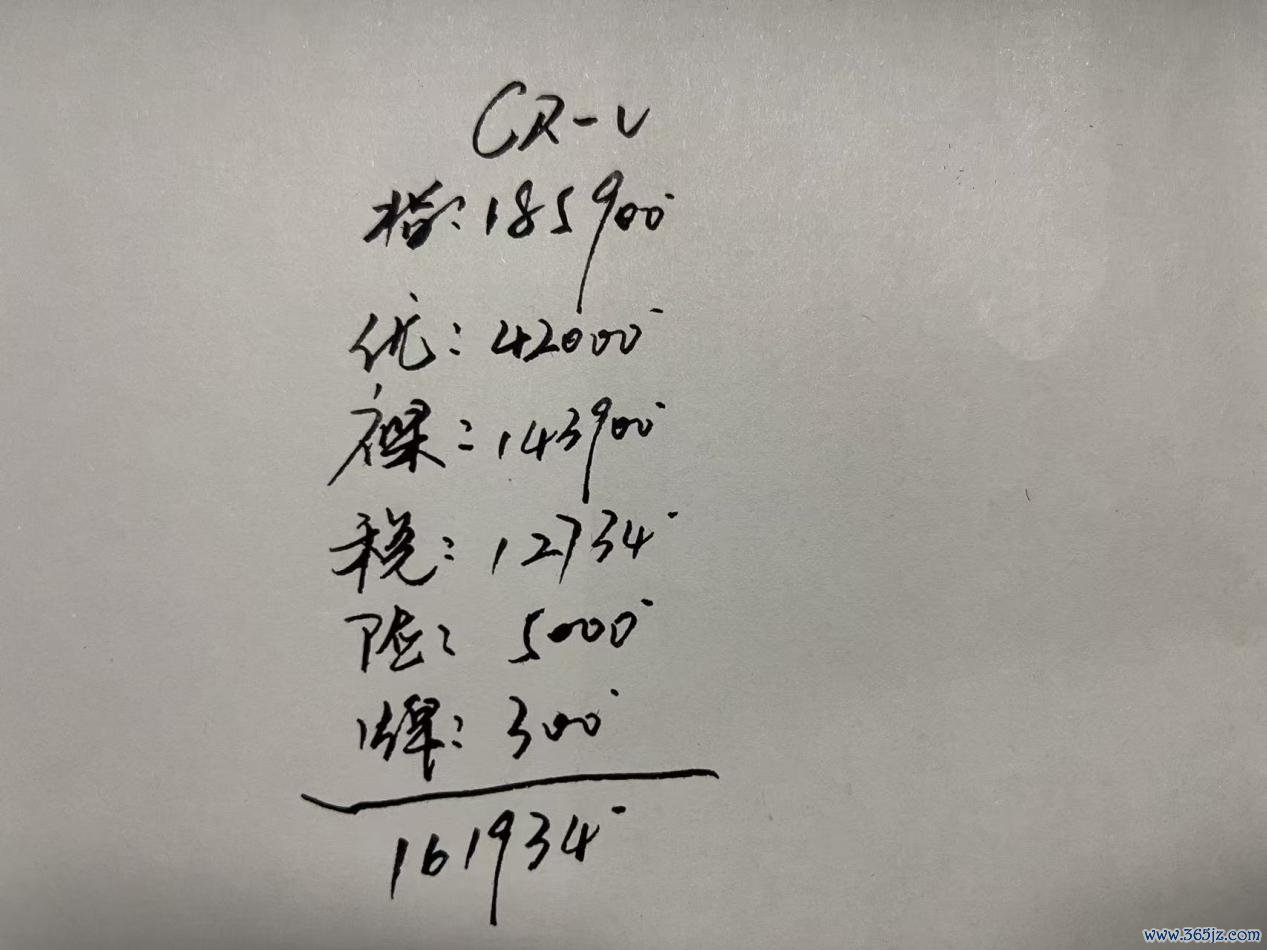 CR-V
指:185900
优:42000
裸:143900
税:12734
险:5000
牌:300
161934
www.365jz.com